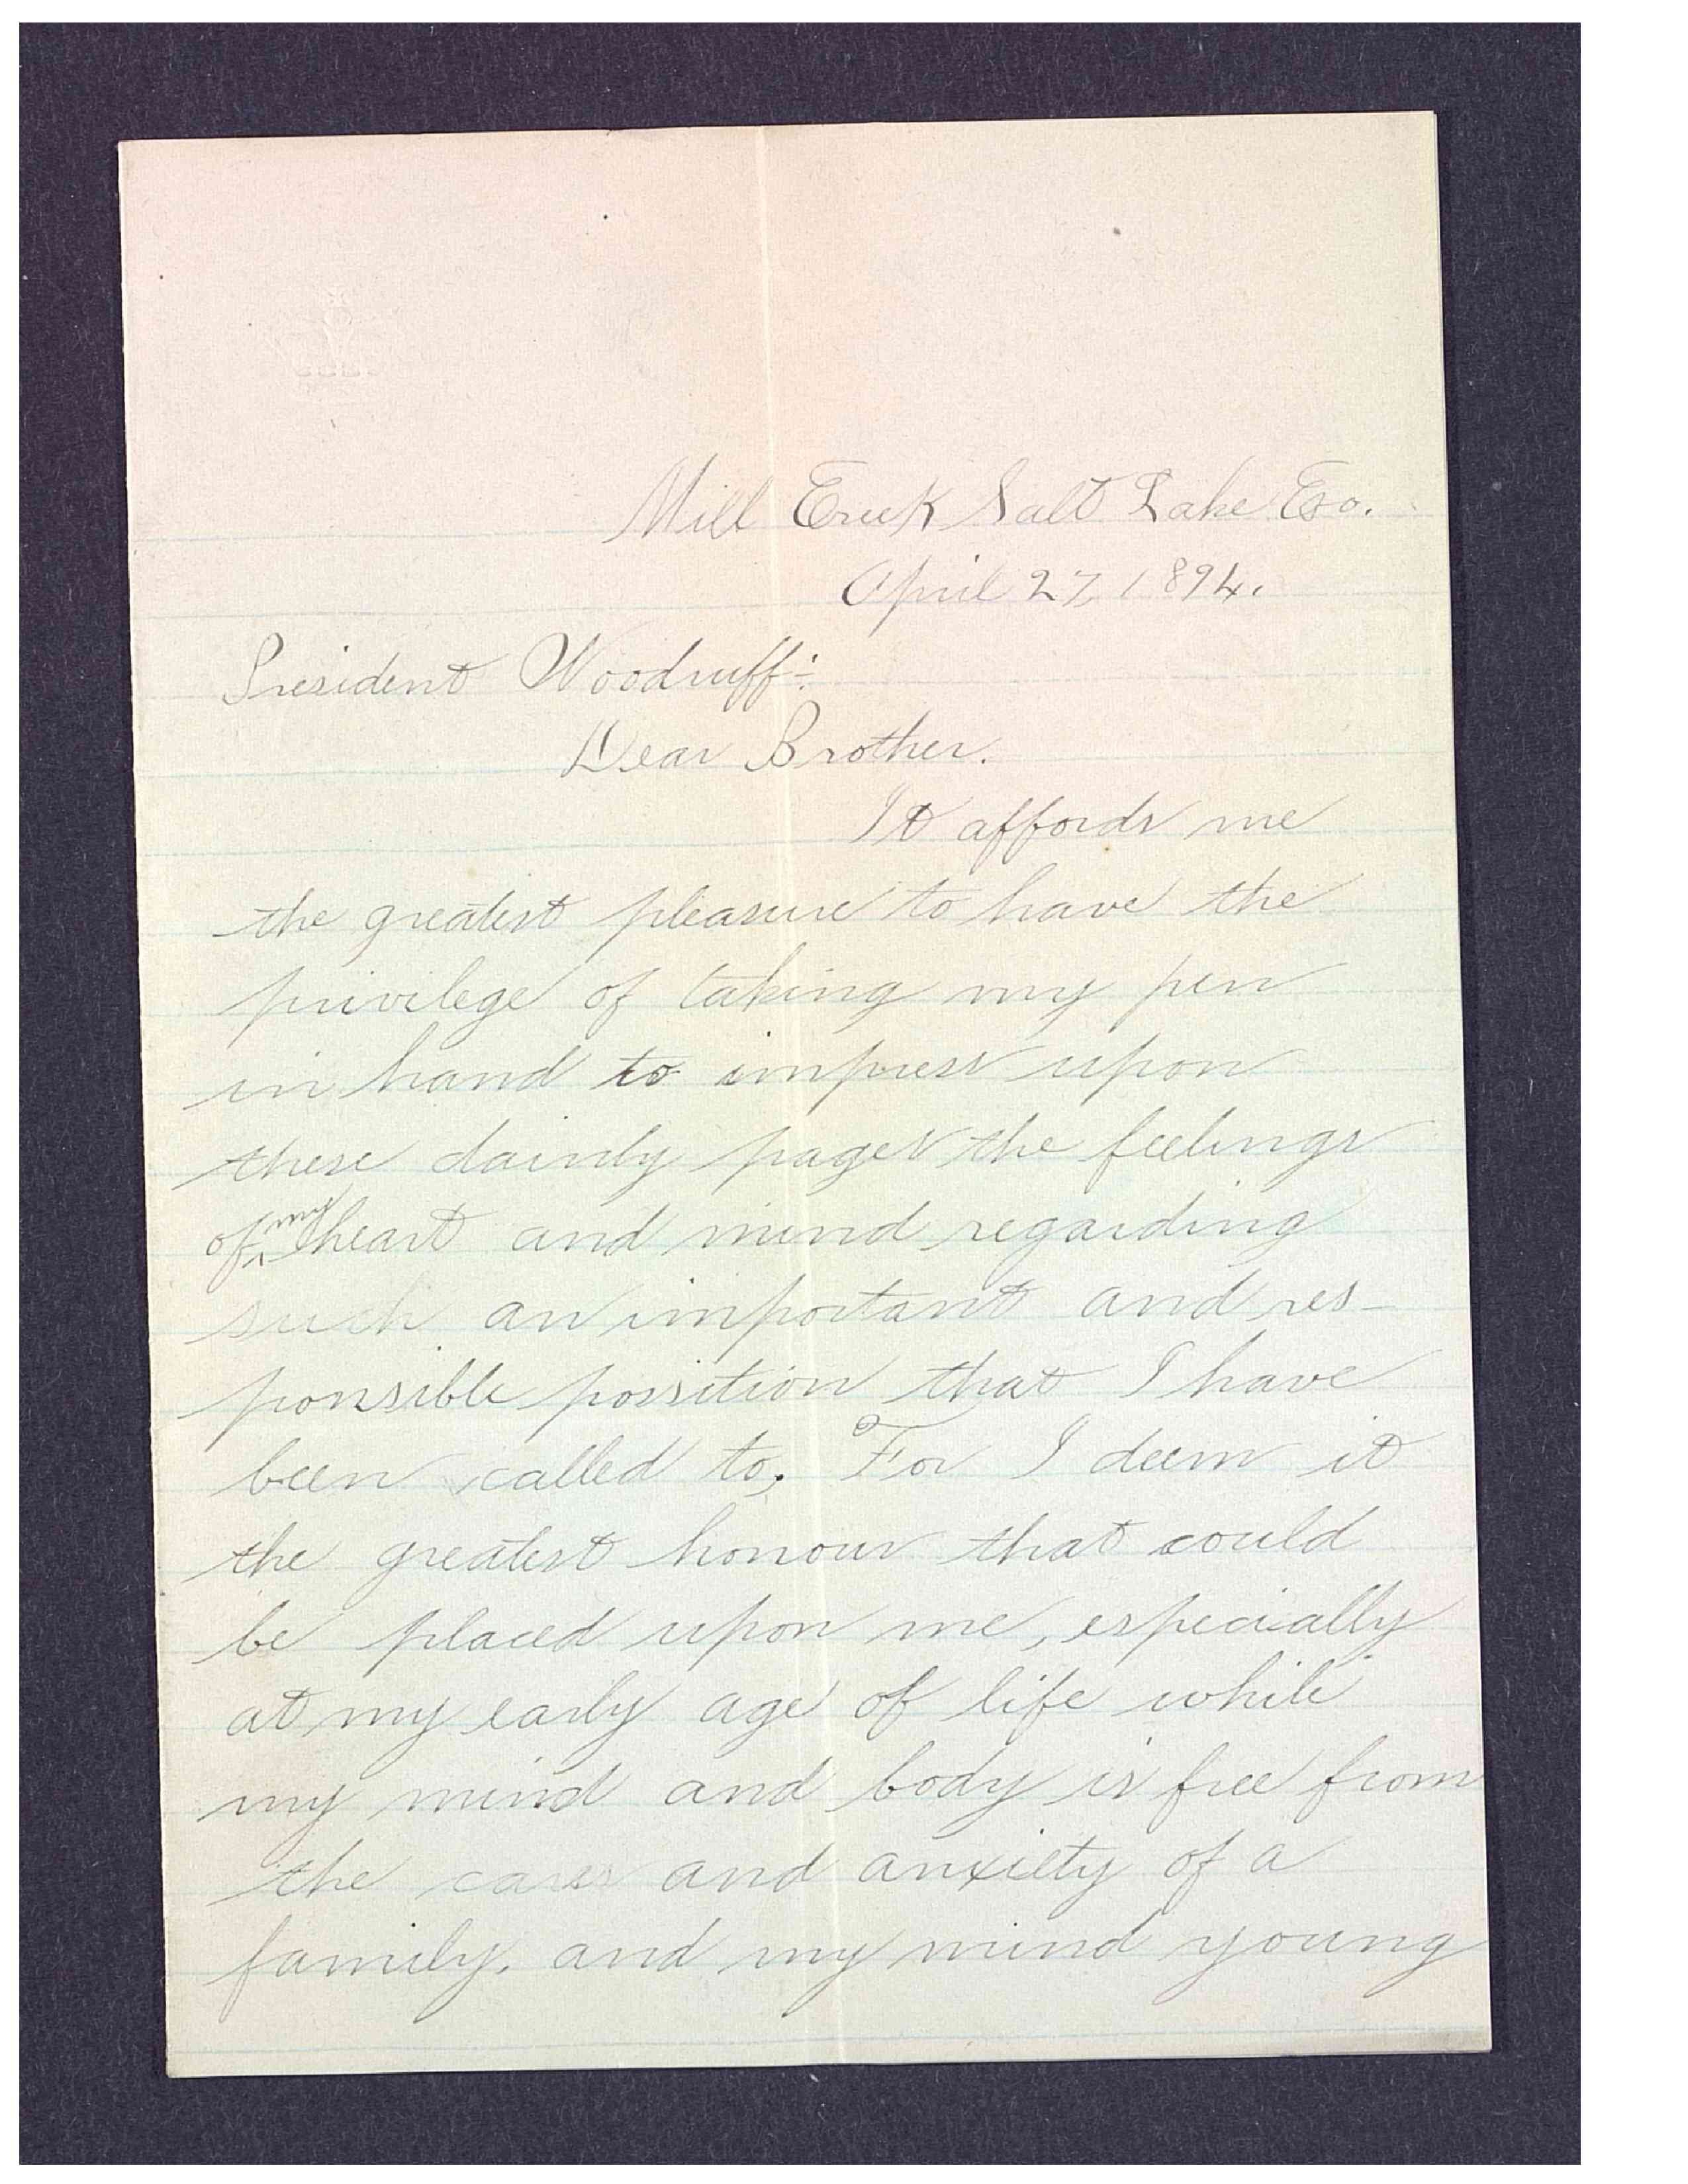 Mill Creek Salt Lake Co.
April 27, 1894.
President Woodruff:
Dear Brother.
It affords me
the greatest pleasure to have the
privilege of taking my pen
in hand to impress upon
these dainty pages the feelings
of my heart and mind regarding
such an important and res-
ponsible possition that I have
been called to; For I deem it
the greatest honour that could
be placed upon me, especially
at my early age of life while
my mind and body is free from
the cares and anxiety of a
family. and my mind young